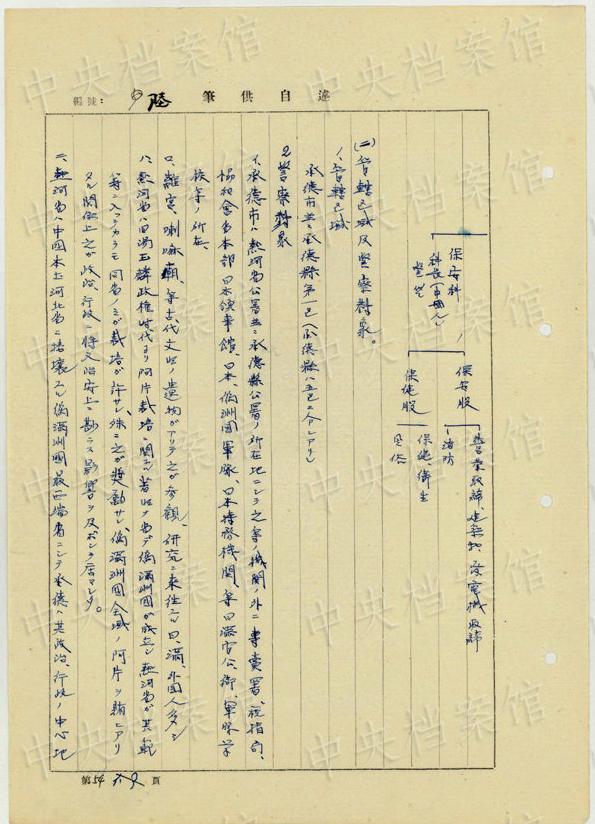 編號:
陸
筆供自述
保安科
科長(中國人)
警佐
保安股
營業取締、建築物、発電機取締
消防
保健股
保健、衛生
風俗
(二)管轄区域及警察対象。
1、管轄区域
承徳市並ニ承徳縣第一区(承徳縣ハ五区ニ分レアリ)
2、警察対象
イ、承徳市ハ熱河省公署並ニ承徳縣公署ノ所在地ニシテ之等ノ機関ノ外ニ専賣署、税捐局、
協和會省本部、日本領事館、日本、偽満洲國軍隊、日本特務機関、等日満官公衙、軍隊
家族等ノ所在、
ロ、離宮、喇嘛廟、等古代文明ノ遺物ガアリテ之ガ参観、研究ニ来往スル日、満、外國人多ク
ハ、熱河省ハ旧湯玉麟政権時代ヨリ阿片栽培ニ関シテ著明ノ省デ偽満洲國ガ成立シ熱河省ガ其範
等ニ入ッテカラモ同省ノミガ栽培ガ許サレ、殊ニ之ガ奨励サレ、偽満洲國全域ノ阿片ヲ賄ヒアリ
タル関係上之ガ政治、行政ニ将又治安上ニ尠ラズ影響ヲ及ボシテ居マシタ。
二、熱河省ハ中國本土河北省ニ接壌スル偽満洲國最西端省ニシテ承徳ハ其政治、行政ノ中心地
第54頁
中央档案馆